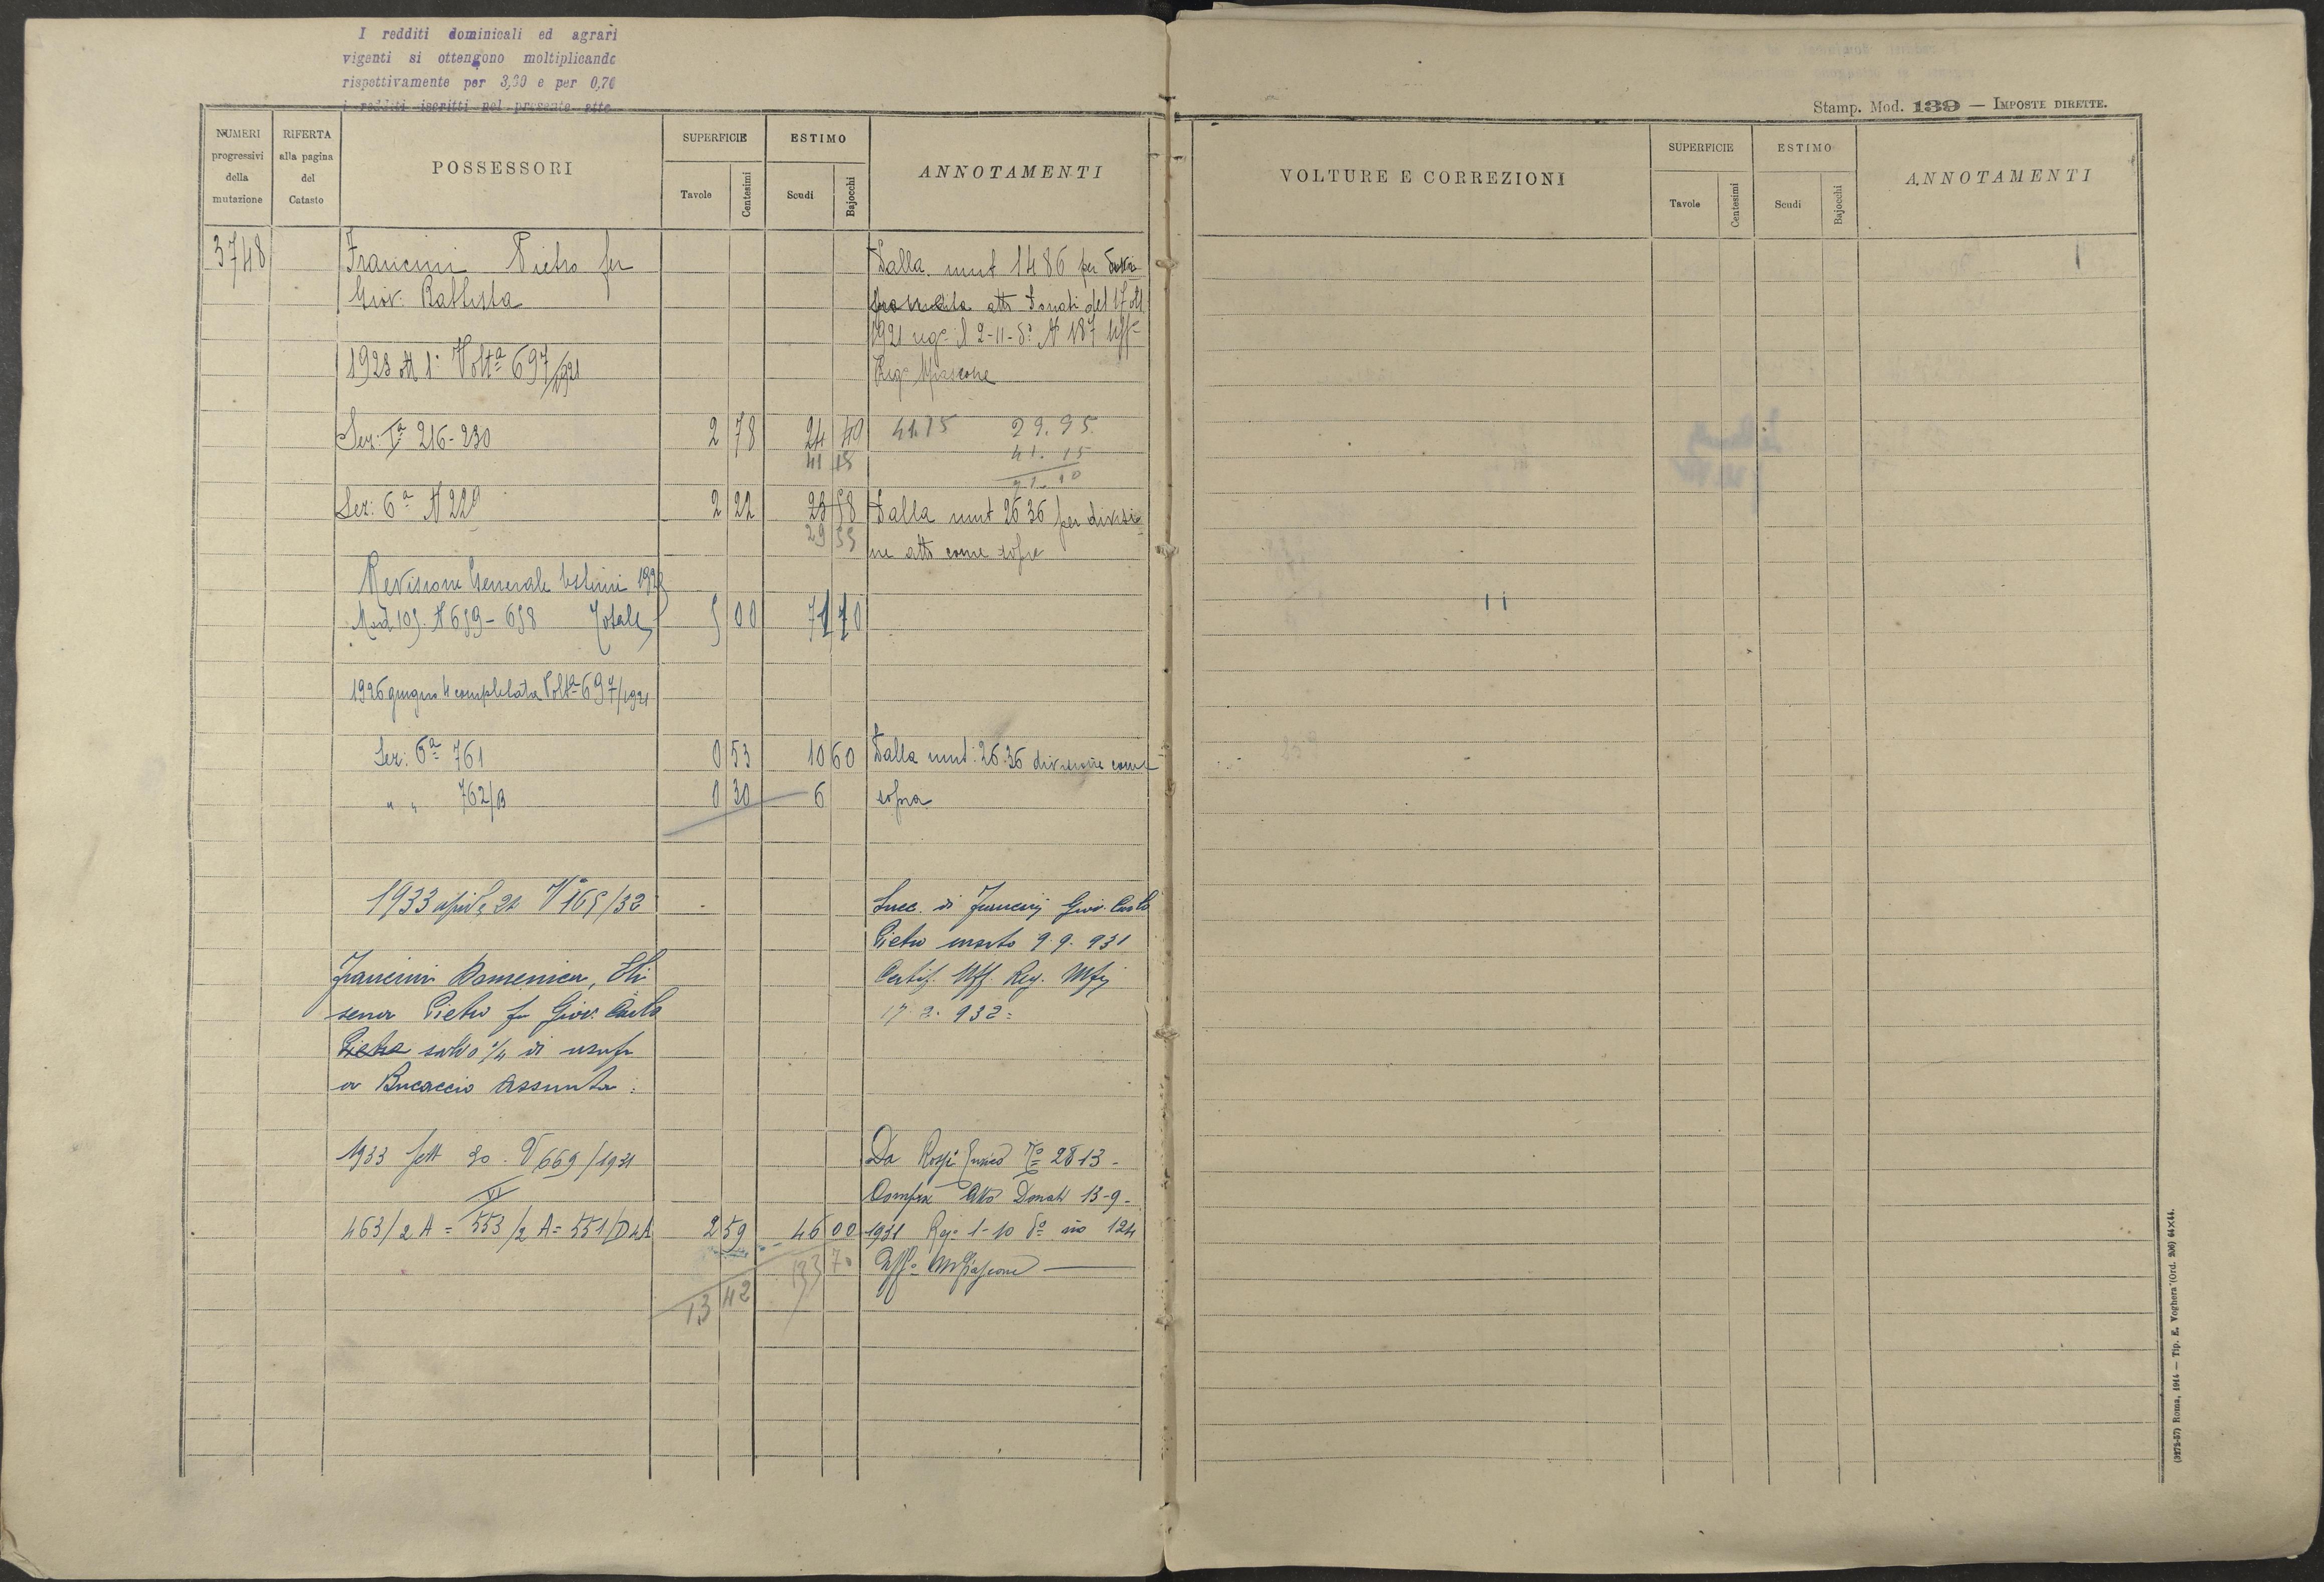 I redditi dominicali ed agrari
vigenti si ottengono moltiplicando
rispettivamente per 3,30 e per 0,70
i redditi iscritti nel presente atto
Stamp. Mod. 139 — IMPOSTE DIRETTE.
NUMERI progressivi della mutazione
RIFERTA alla pagina del Catasto
POSSESSORI
SUPERFICIE
Tavole
Centesimi
ESTIMO
Scudi
Bajocchi
ANNOTAMENTI
VOLTURE E CORREZIONI
SUPERFICIE
Tavole
Centesimi
ESTIMO
Scudi
Bajocchi
ANNOTAMENTI
3748 Francini Pietro fu Dalla mut 1486 per
Giov. Battista atto Donati del 17
1921 reg° il 2-11-d° N 187 Uff°
1923 Volt.a 697/1921 Reg°
Sez: 216-230 2 78 24 40 41.75 29.95
41 15 41.15
Sez: 6a N 229 2 22 28 58 Dalla mut 2636 per divisio
29 55 ne atto come sopra
Revisione Generale Estimi 192
Mod 109. N 659-658 Totale 5 00 71 70
1926 giugno 4 completata Volt.a 697/1921
Sez: 6a 761 0 53 10 60 Dalla mut: 2636 divisione come
" " 762/B 0 30 6 sopra
1933 aprile 21 V 165/32 Succ. di Francini Giov. Carlo
Pietro morto 9.9.931
Francini Domenica, Certif. Uff. Reg.
Pietro fu Giov. Carlo 17.2.932=
Pietro salvo 1/4 di usuf
a Bucaccio Assunta:
1933 Sett 30. V 669/1931 Da Rossi Enrico N° 2813-
VI Compra Atto Donati 13-9-
463/2 A = 553/2 A = 551/D4A 2 59 46 00 1931 Reg° 1-10 d° n° 124
133 70 Uff°
13 42
(3272-57) Roma, 1914 — Tip. E. Voghera (Ord. 206) 64×44.